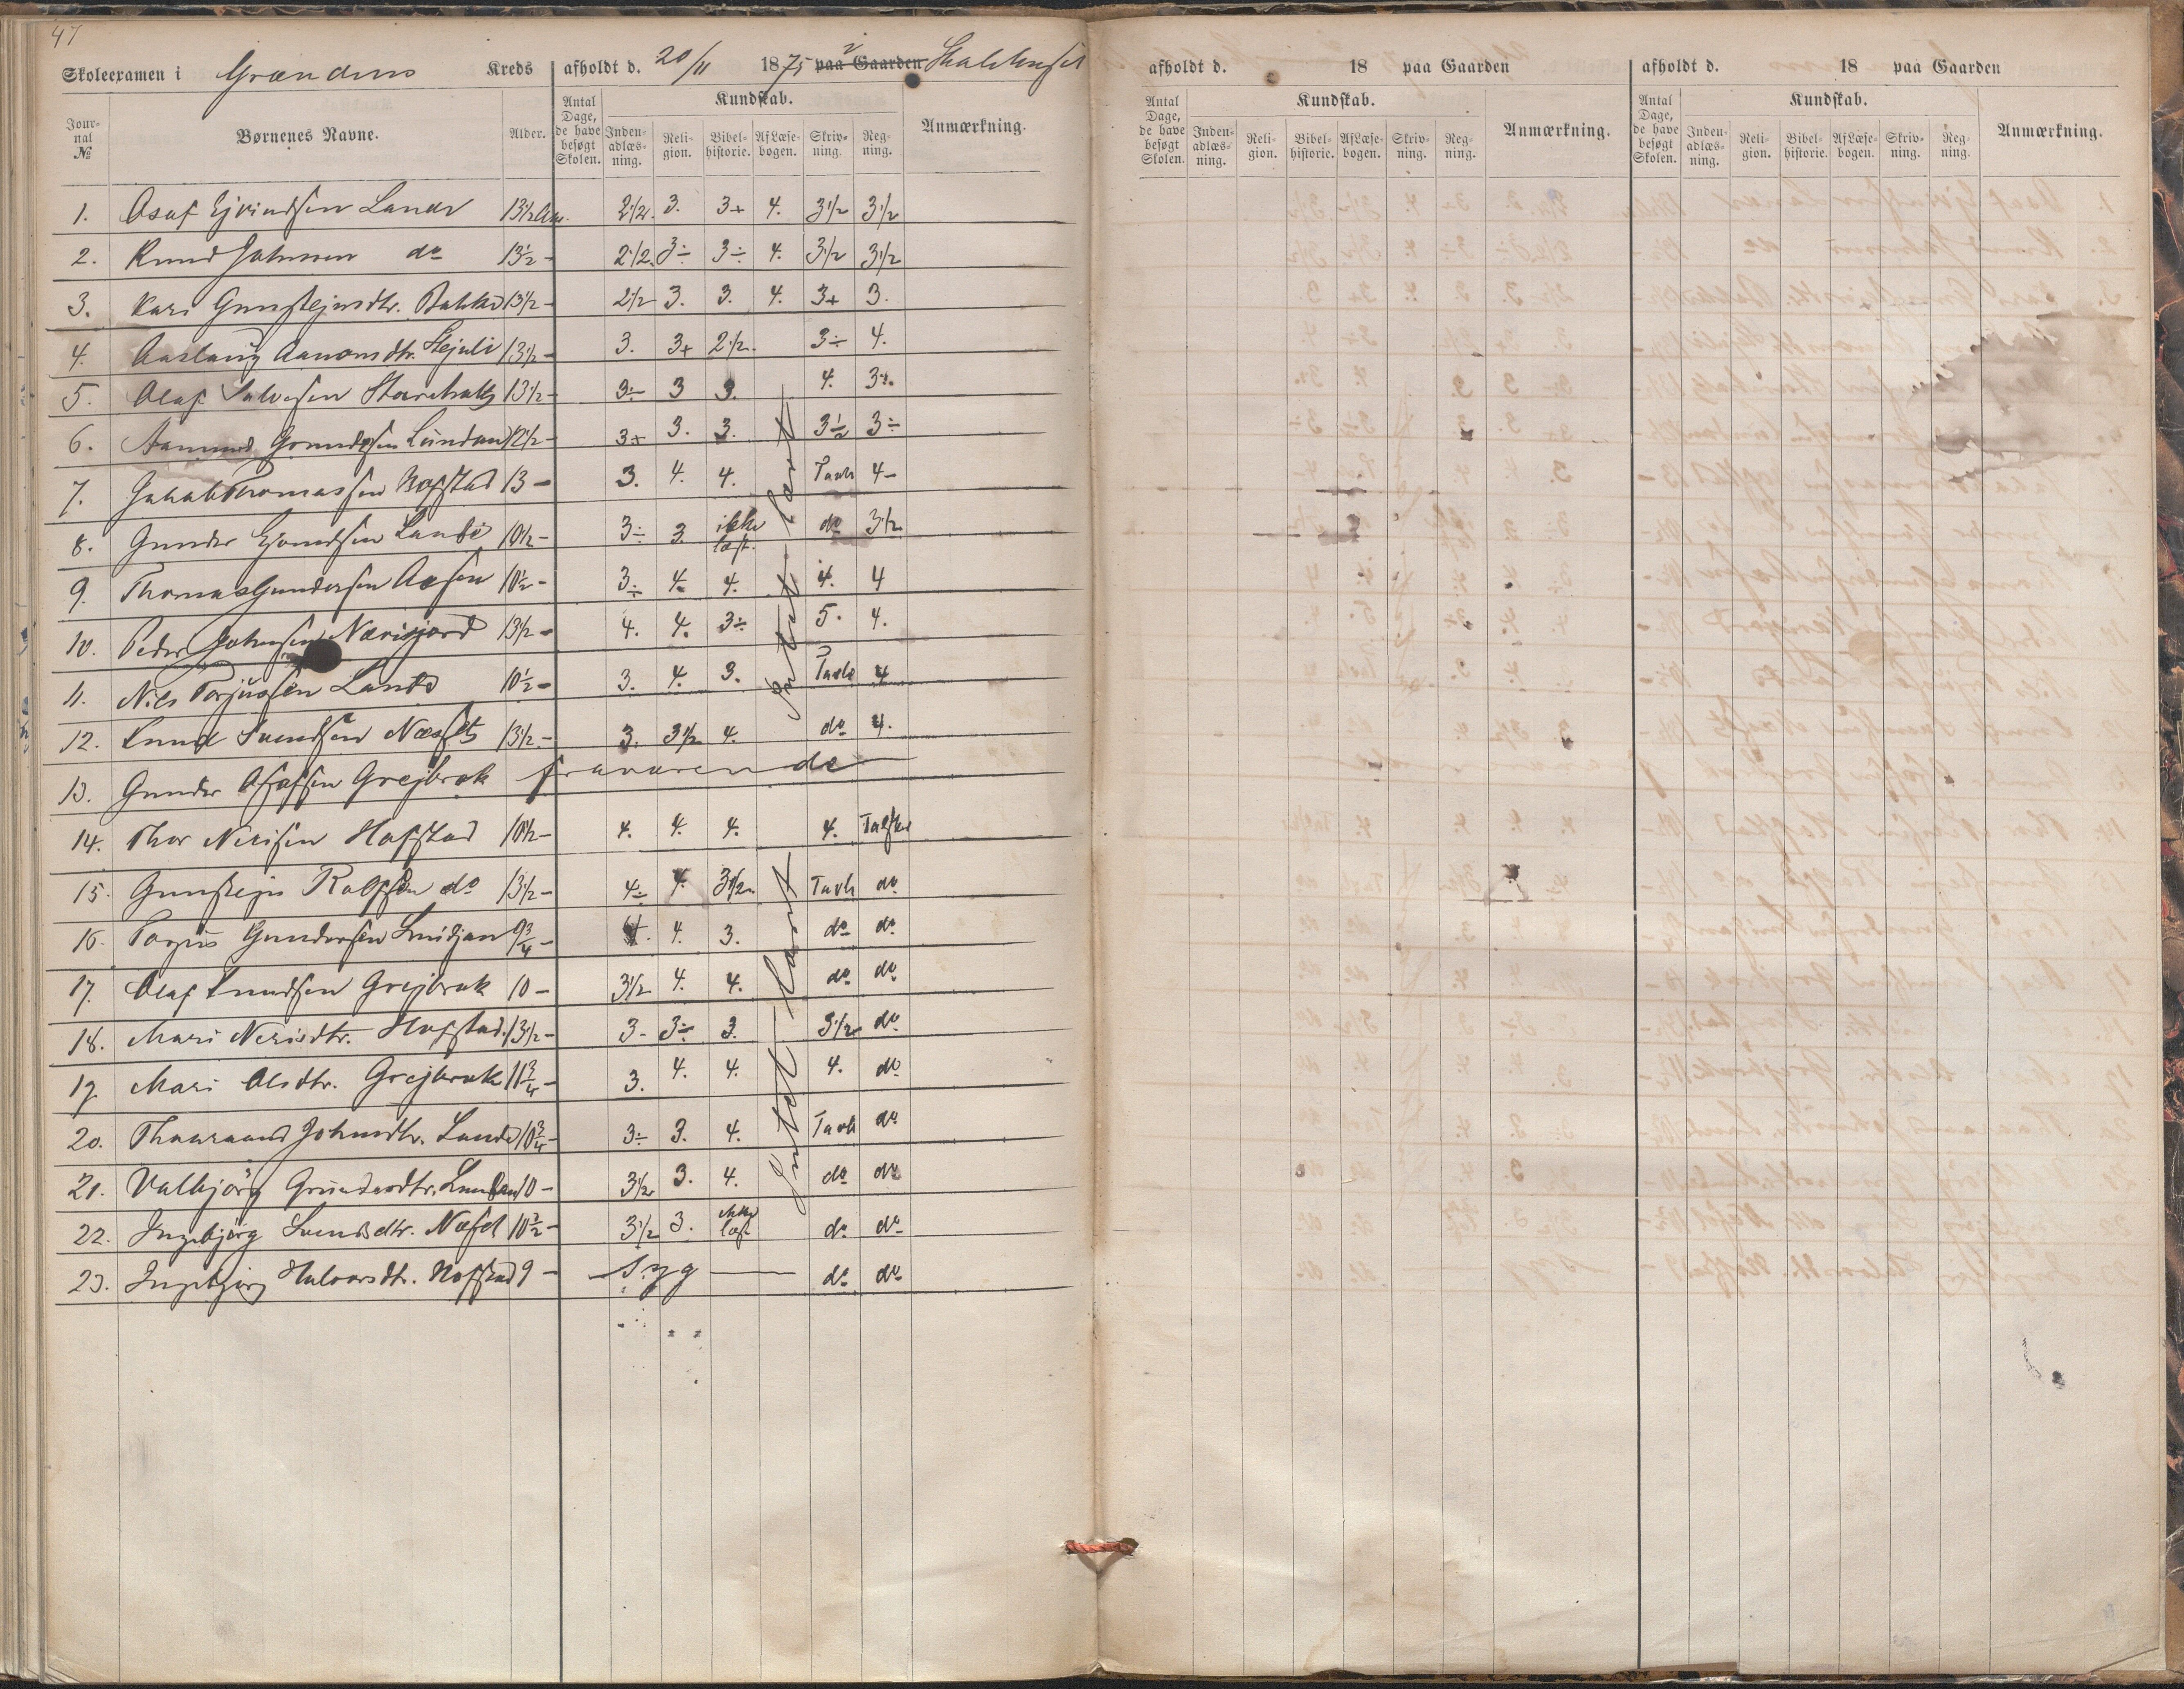 47
Skoleexamen i Grændens Kreds afholdt d. 20/11 1875 paa Gaarden i Skolehuset
Jour-nal № Børnenes Navne. Alder. Antal Dage, de have besøgt Skolen. Kundskab. Inden-adlæs-ning. Reli-gion. Bibel-historie. Af Læse-bogen. Skriv-ning. Reg-ning. Anmærkning.
1. Asaf Ejvindsen Lande 13½ Aar. 2½. 3. 3+ 4. 3½ 3½
2. Knud Johnsen do 13½ - 2½. 3÷ 3÷ 4. 3½ 3½
3. Kari Gunstejnsdtr. Bakka 13½ - 2½ 3. 3. 4. 3+ 3.
4. Aaslaug Aanonsdtr. Stejuli 13½ - 3. 3+ 2½. 3÷ 4.
5. Olaf Salvesen 13½ - 3÷ 3 3. 4. 3½.
6. Aamund Lundan 12½ - 3+ 3. 3. 3½ 3÷
7. Jakob Thomassen Hofstad 13 - 3. 4. 4. Tavle 4-
8. Gunder Ejvindsen Lande 10½ - 3÷ 3. ikke læst. do 3½
9. Thomas Gundersen Aasen 10½ - 3÷ 4. 4. 4. 4
10. Peder Johnsen Nærisjord 13½ - 4. 4. 3÷ 5. 4.
11. Nils Torjusen Lande 10½ - 3. 4. 3. Tavle 4
12. Knud Svendsen Næset 13½ - 3. 3½ 4. do 4.
Intet lært
13. Gunder Asafsen Grejbrok fraværende
14. Thor Nerisen Hofstad 10½ - 4. 4. 4. 4. Talstør
15. Gunstejn Rolfsen do 13½ - 4÷ 4. 3½. Tavle do
16. Torjus Gundersen Smidjan 9¾ - 4. 4. 3. do do
17. Olaf Knudsen Grejbrok 10 - 3½ 4. 4. do do
18. Mari Nerisdtr. Hofstad. 13½ - 3- 3÷ 3. 3½ do
19. Mari Olsdtr. Grejbrok 11¾ - 3. 4. 4. 4. do
20. Thaaraand Johnsdtr. Lande 10¾ - 3÷ 3. 4. Tavle do
21. Valbjörg Gundersdtr. Lundan 10 - 3½ 3. 4. do do
22. Ingebjörg Svendsdtr. Næset 10½ - 3½ 3. ikke læst do do
Intet lært
23. Ingebjörg Halvorsdtr. Hofstad 9 - Syg do do
afholdt d. 18 paa Gaarden
Antal Dage, de have besøgt Skolen. Kundskab. Inden-adlæs-ning. Reli-gion. Bibel-historie. Af Læse-bogen. Skriv-ning. Reg-ning. Anmærkning.
afholdt d. 18 paa Gaarden
Antal Dage, de have besøgt Skolen. Kundskab. Inden-adlæs-ning. Reli-gion. Bibel-historie. Af Læse-bogen. Skriv-ning. Reg-ning. Anmærkning.